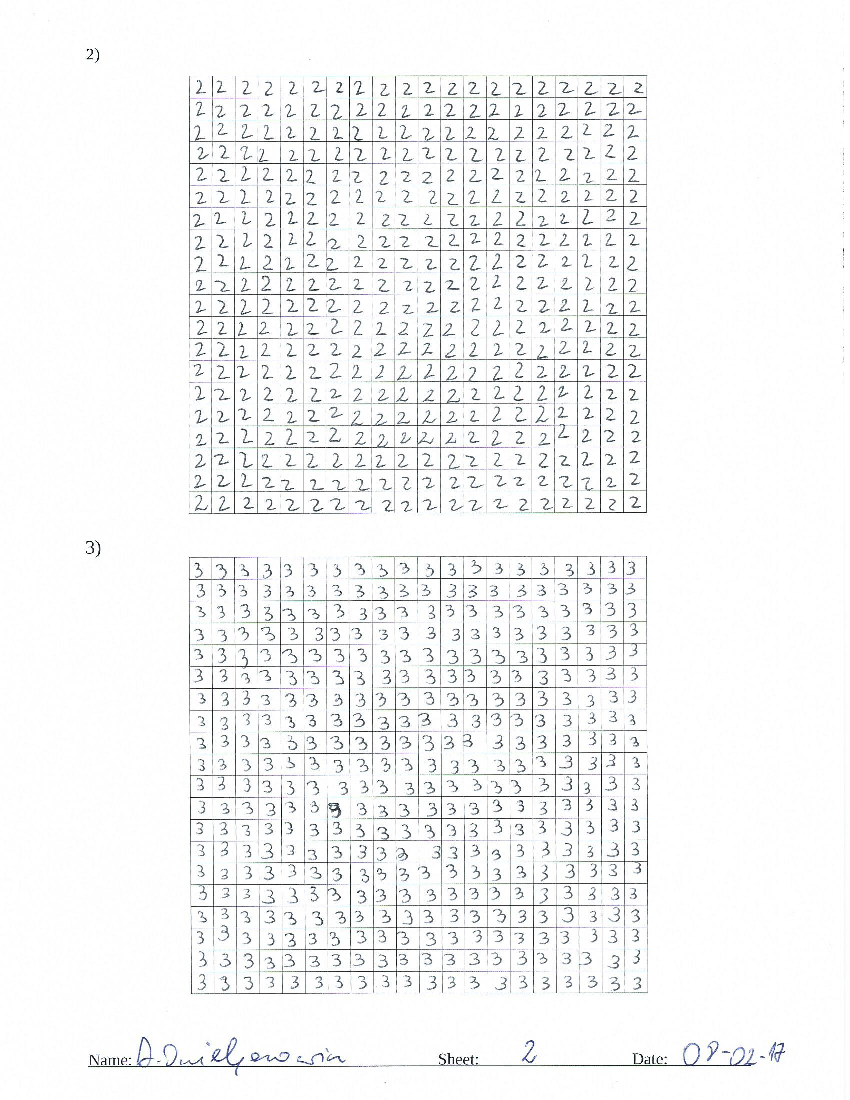 2)
2 2 2 2 2 2 2 2 2 2 2 2 2 2 2 2 2 2 2 2
2 2 2 2 2 2 2 2 2 2 2 2 2 2 2 2 2 2 2 2
2 2 2 2 2 2 2 2 2 2 2 2 2 2 2 2 2 2 2 2
2 2 2 2 2 2 2 2 2 2 2 2 2 2 2 2 2 2 2 2
2 2 2 2 2 2 2 2 2 2 2 2 2 2 2 2 2 2 2 2
2 2 2 2 2 2 2 2 2 2 2 2 2 2 2 2 2 2 2 2
2 2 2 2 2 2 2 2 2 2 2 2 2 2 2 2 2 2 2 2
2 2 2 2 2 2 2 2 2 2 2 2 2 2 2 2 2 2 2 2
2 2 2 2 2 2 2 2 2 2 2 2 2 2 2 2 2 2 2 2
2 2 2 2 2 2 2 2 2 2 2 2 2 2 2 2 2 2 2 2
2 2 2 2 2 2 2 2 2 2 2 2 2 2 2 2 2 2 2 2
2 2 2 2 2 2 2 2 2 2 2 2 2 2 2 2 2 2 2 2
2 2 2 2 2 2 2 2 2 2 2 2 2 2 2 2 2 2 2 2
2 2 2 2 2 2 2 2 2 2 2 2 2 2 2 2 2 2 2 2
2 2 2 2 2 2 2 2 2 2 2 2 2 2 2 2 2 2 2 2
2 2 2 2 2 2 2 2 2 2 2 2 2 2 2 2 2 2 2 2
2 2 2 2 2 2 2 2 2 2 2 2 2 2 2 2 2 2 2 2
2 2 2 2 2 2 2 2 2 2 2 2 2 2 2 2 2 2 2 2
2 2 2 2 2 2 2 2 2 2 2 2 2 2 2 2 2 2 2 2
2 2 2 2 2 2 2 2 2 2 2 2 2 2 2 2 2 2 2 2
3)
3 3 3 3 3 3 3 3 3 3 3 3 3 3 3 3 3 3 3 3
3 3 3 3 3 3 3 3 3 3 3 3 3 3 3 3 3 3 3 3
3 3 3 3 3 3 3 3 3 3 3 3 3 3 3 3 3 3 3 3
3 3 3 3 3 3 3 3 3 3 3 3 3 3 3 3 3 3 3 3
3 3 3 3 3 3 3 3 3 3 3 3 3 3 3 3 3 3 3 3
3 3 3 3 3 3 3 3 3 3 3 3 3 3 3 3 3 3 3 3
3 3 3 3 3 3 3 3 3 3 3 3 3 3 3 3 3 3 3 3
3 3 3 3 3 3 3 3 3 3 3 3 3 3 3 3 3 3 3 3
3 3 3 3 3 3 3 3 3 3 3 3 3 3 3 3 3 3 3 3
3 3 3 3 3 3 3 3 3 3 3 3 3 3 3 3 3 3 3 3
3 3 3 3 3 3 3 3 3 3 3 3 3 3 3 3 3 3 3 3
3 3 3 3 3 3 3 3 3 3 3 3 3 3 3 3 3 3 3 3
3 3 3 3 3 3 3 3 3 3 3 3 3 3 3 3 3 3 3 3
3 3 3 3 3 3 3 3 3 3 3 3 3 3 3 3 3 3 3 3
3 3 3 3 3 3 3 3 3 3 3 3 3 3 3 3 3 3 3 3
3 3 3 3 3 3 3 3 3 3 3 3 3 3 3 3 3 3 3 3
3 3 3 3 3 3 3 3 3 3 3 3 3 3 3 3 3 3 3 3
3 3 3 3 3 3 3 3 3 3 3 3 3 3 3 3 3 3 3 3
3 3 3 3 3 3 3 3 3 3 3 3 3 3 3 3 3 3 3 3
3 3 3 3 3 3 3 3 3 3 3 3 3 3 3 3 3 3 3 3
Name: Sheet: 2 Date: 08-02-17